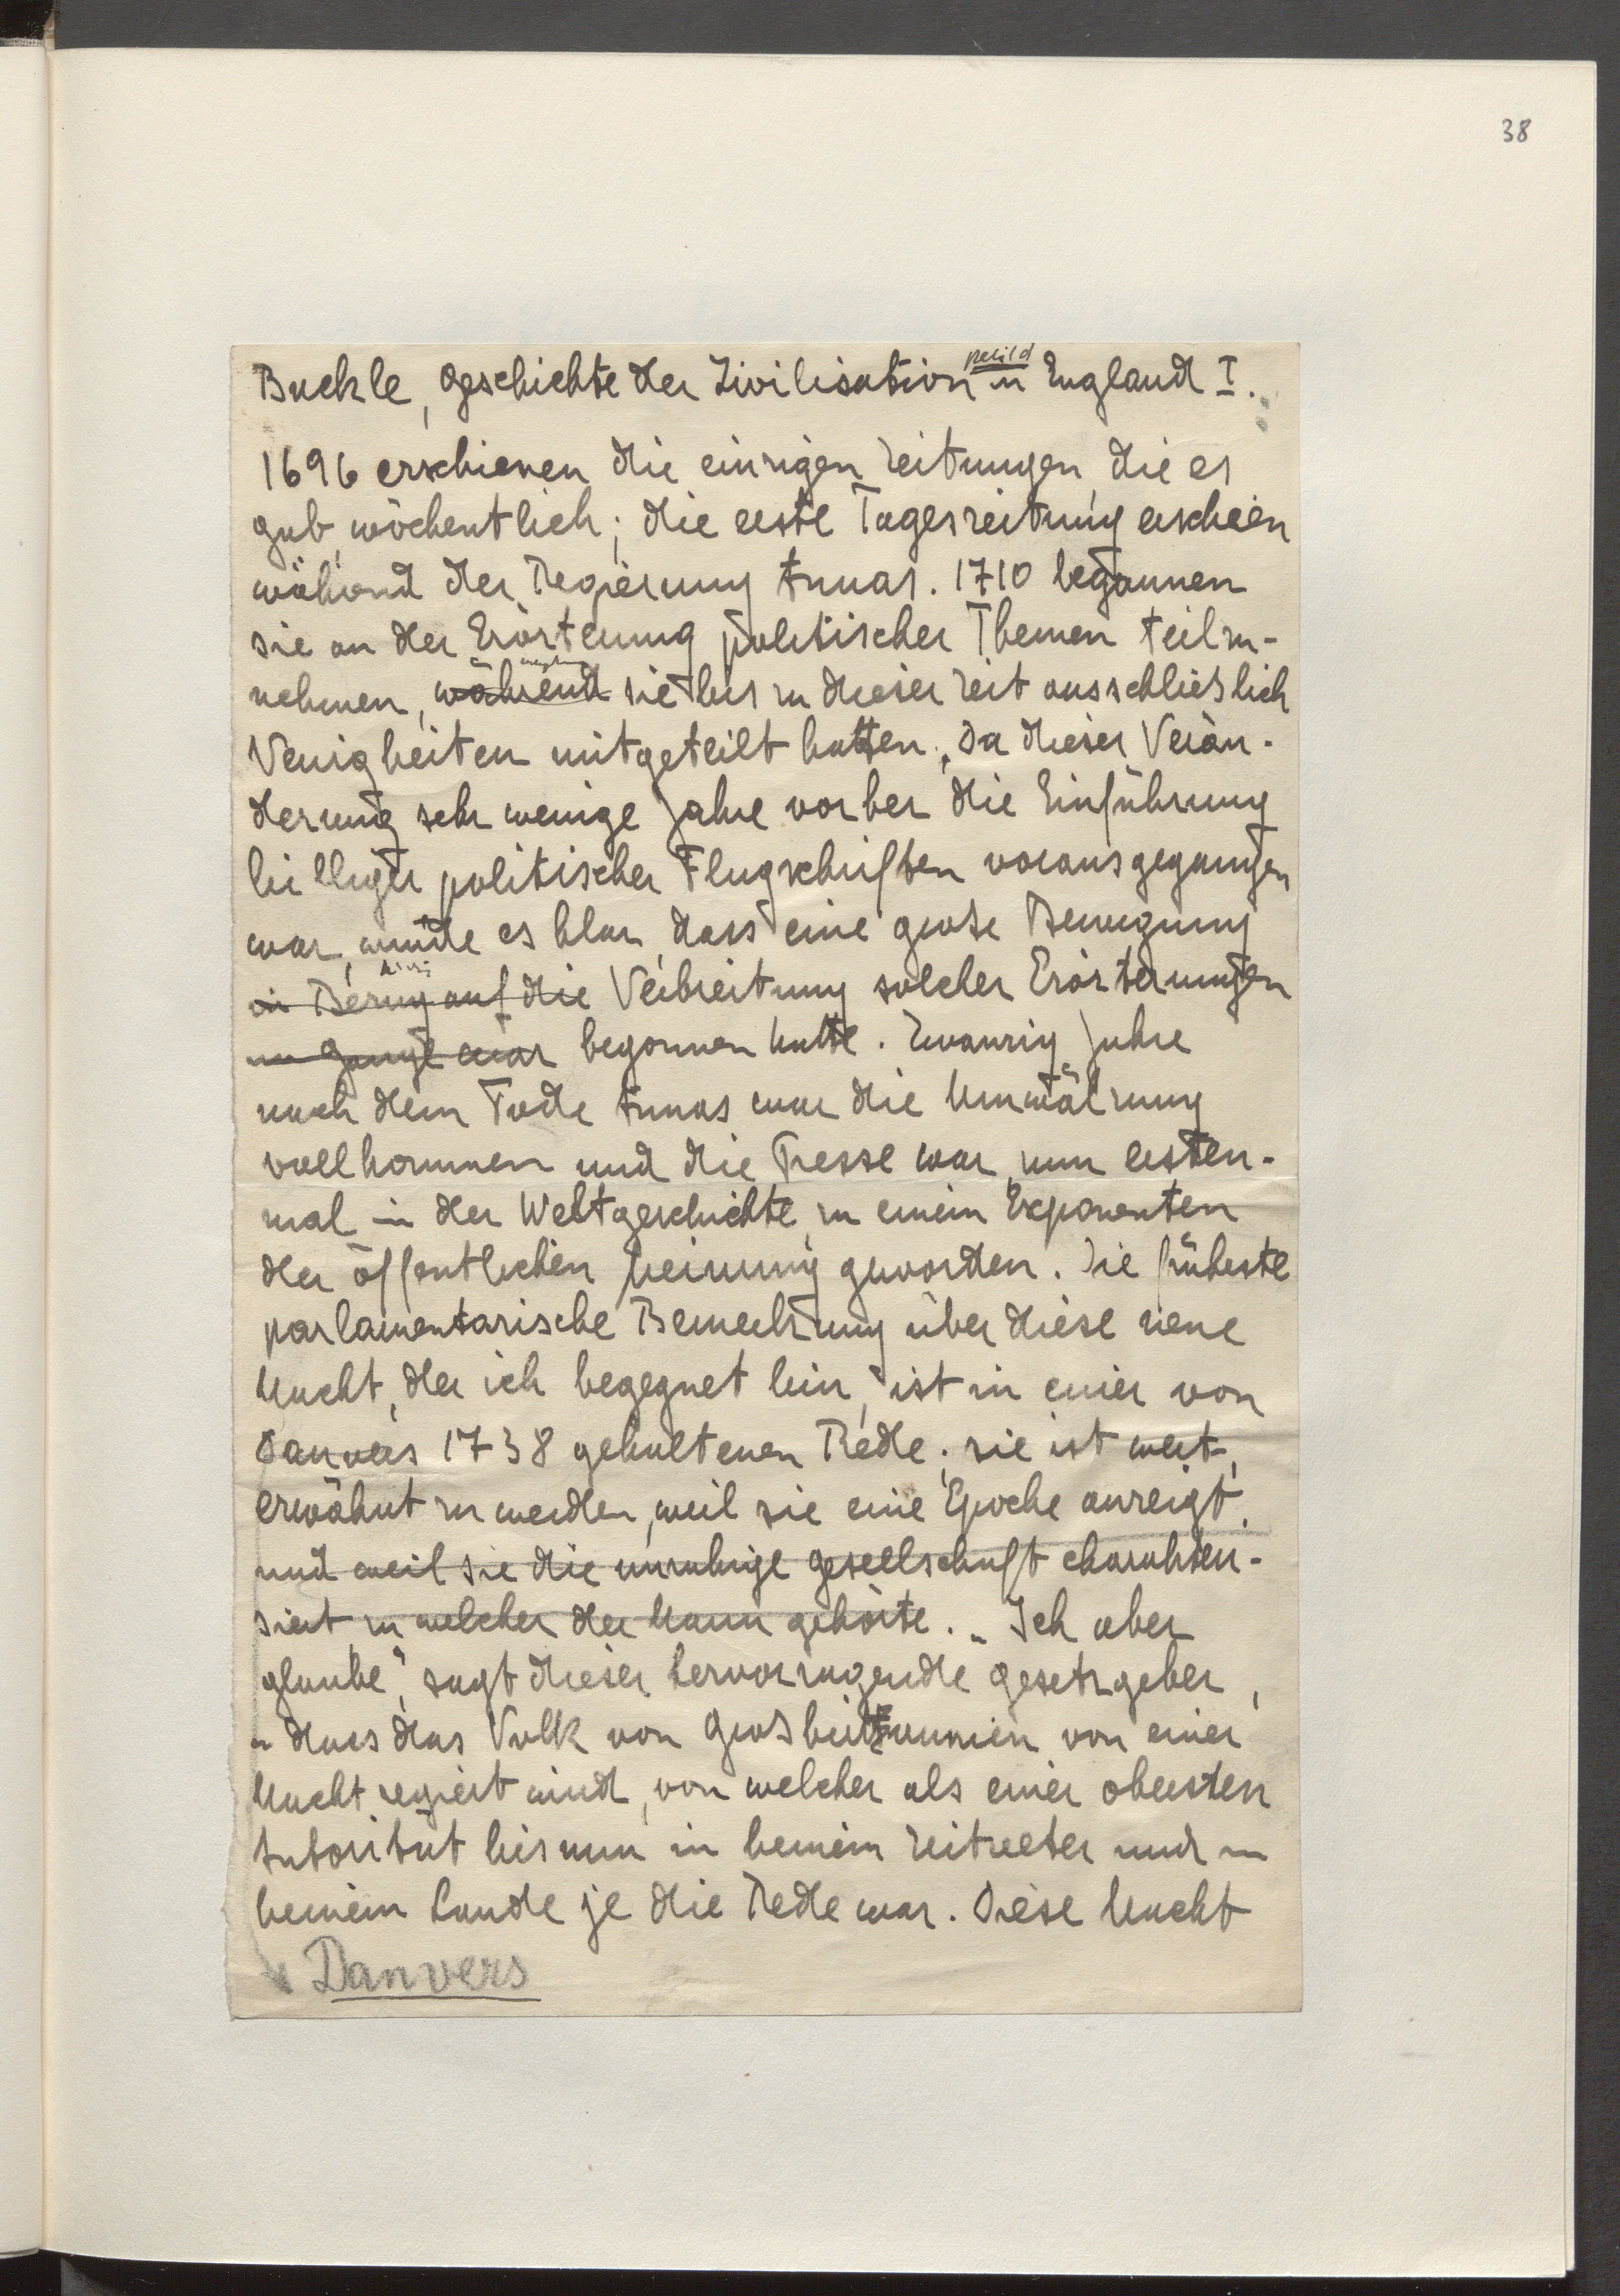 38
Buckle, Geschichte der Zivilisation in England I.
1696 erschienen die einzigen Zeitungen, die es
gab, wöchentlich; die erste Tageszeitung erschien
während der Regierung Annas. 1710 begannen
sie an der Erörterung politischer Themen teilzu-
nehmen, während sie bis zu dieser Zeit ausschließlich
Neuigkeiten mitgeteilt hatten. „Da dieser Verän-
derung sehr wenige Jahre vorher die Einführung
billiger politischer Flugschriften vorausgegangen
war, wurde es klar, dass eine große Bewegung
in Bezug auf die Verbreitung solcher Erörterungen
im Gange war begonnen hatte. Zwanzig Jahre
nach dem Tode Annas war die Umwälzung
vollkommen und die Presse war zum ersten-
mal in der Weltgeschichte zu einem Exponenten
der öffentlichen Meinung geworden. Die früheste
parlamentarische Bemerkung über diese neue
Macht, der ich begegnet bin, ist in einer von
Danvers 1738 gehaltenen Rede; sie ist wert,
erwähnt zu werden, weil sie eine Epoche anzeigt,
und weil sie die unruhige Gesellschaft charakteri-
siert zu welcher der Mann gehörte. „Ich aber
glaube“, sagt dieser hervorragende Gesetzgeber,
„dass das Volk von Großbritannien von einer
Macht regiert wird, von welcher als einer obersten
Autorität bis nun in keinem Zeitalter und in
keinem Lande je die Rede war. Diese Macht
Danvers